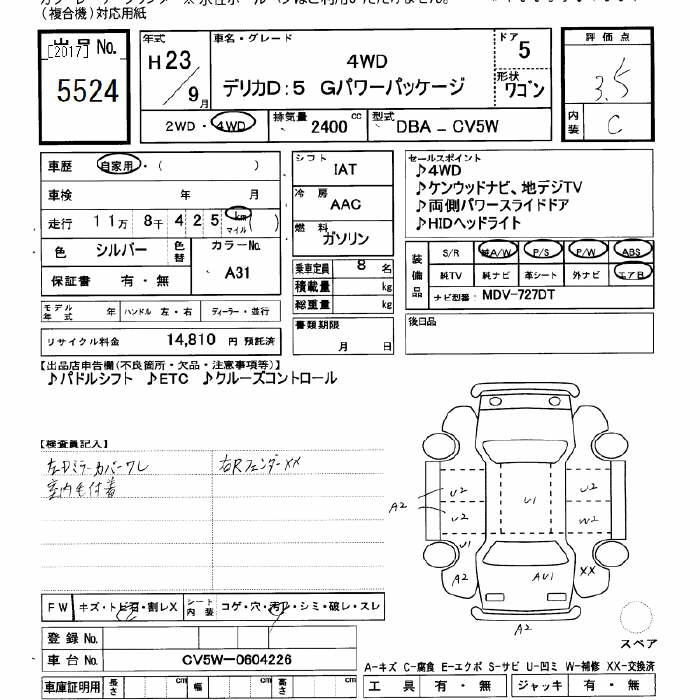 (複合機)対応用紙
出品No.
[2017]
5524
年式
H 23/9月
車名・グレード
4WD
デリカD:5 Gパワーパッケージ
ドア
5
形状
ワゴン
2WD・4WD
排気量 2400 cc
型式 DBA-CV5W
評価点
3.5
内装
C
車歴 自家用・( )
車検 年 月
走行 11万 8千 4 2 5 km マイル ( )
色 シルバー 色替
カラーNo. A31
保証書 有・無
モデル年式 年 ハンドル 左・右 ディーラー・並行
リサイクル料金 14,810 円 預託済
シフト IAT
冷房 AAC
燃料 ガソリン
乗車定員 8 名
積載量 kg
総重量 kg
書類期限
月 日
セールスポイント
♪4WD
♪ケンウッドナビ、地デジTV
♪両側パワースライドドア
♪HIDヘッドライト
装備品
S/R 純A/W P/S P/W ABS
純TV 純ナビ 革シート 外ナビ エアB
ナビ型番 MDV-727DT
後日品
【出品店申告欄(不良箇所・欠品・注意事項等)】
♪パドルシフト ♪ETC ♪クルーズコントロール
【検査員記入】
左Dミラーカバーワレ
右Rフェンダーxx
室内毛付着
A2
U2
U2
U1
U2
W2
U1
A2
AU1
XX
A2
スペア
FW キズ・トビ石・割レX
シート内装 コゲ・穴・汚レ・シミ・破レ・スレ
登録No.
車台No. CV5W-0604226
車庫証明用 長さ cm 幅 cm 高さ cm
A-キズ C-腐食 E-エクボ S-サビ U-凹ミ W-補修 XX-交換済
工具 有・無 ジャッキ 有・無